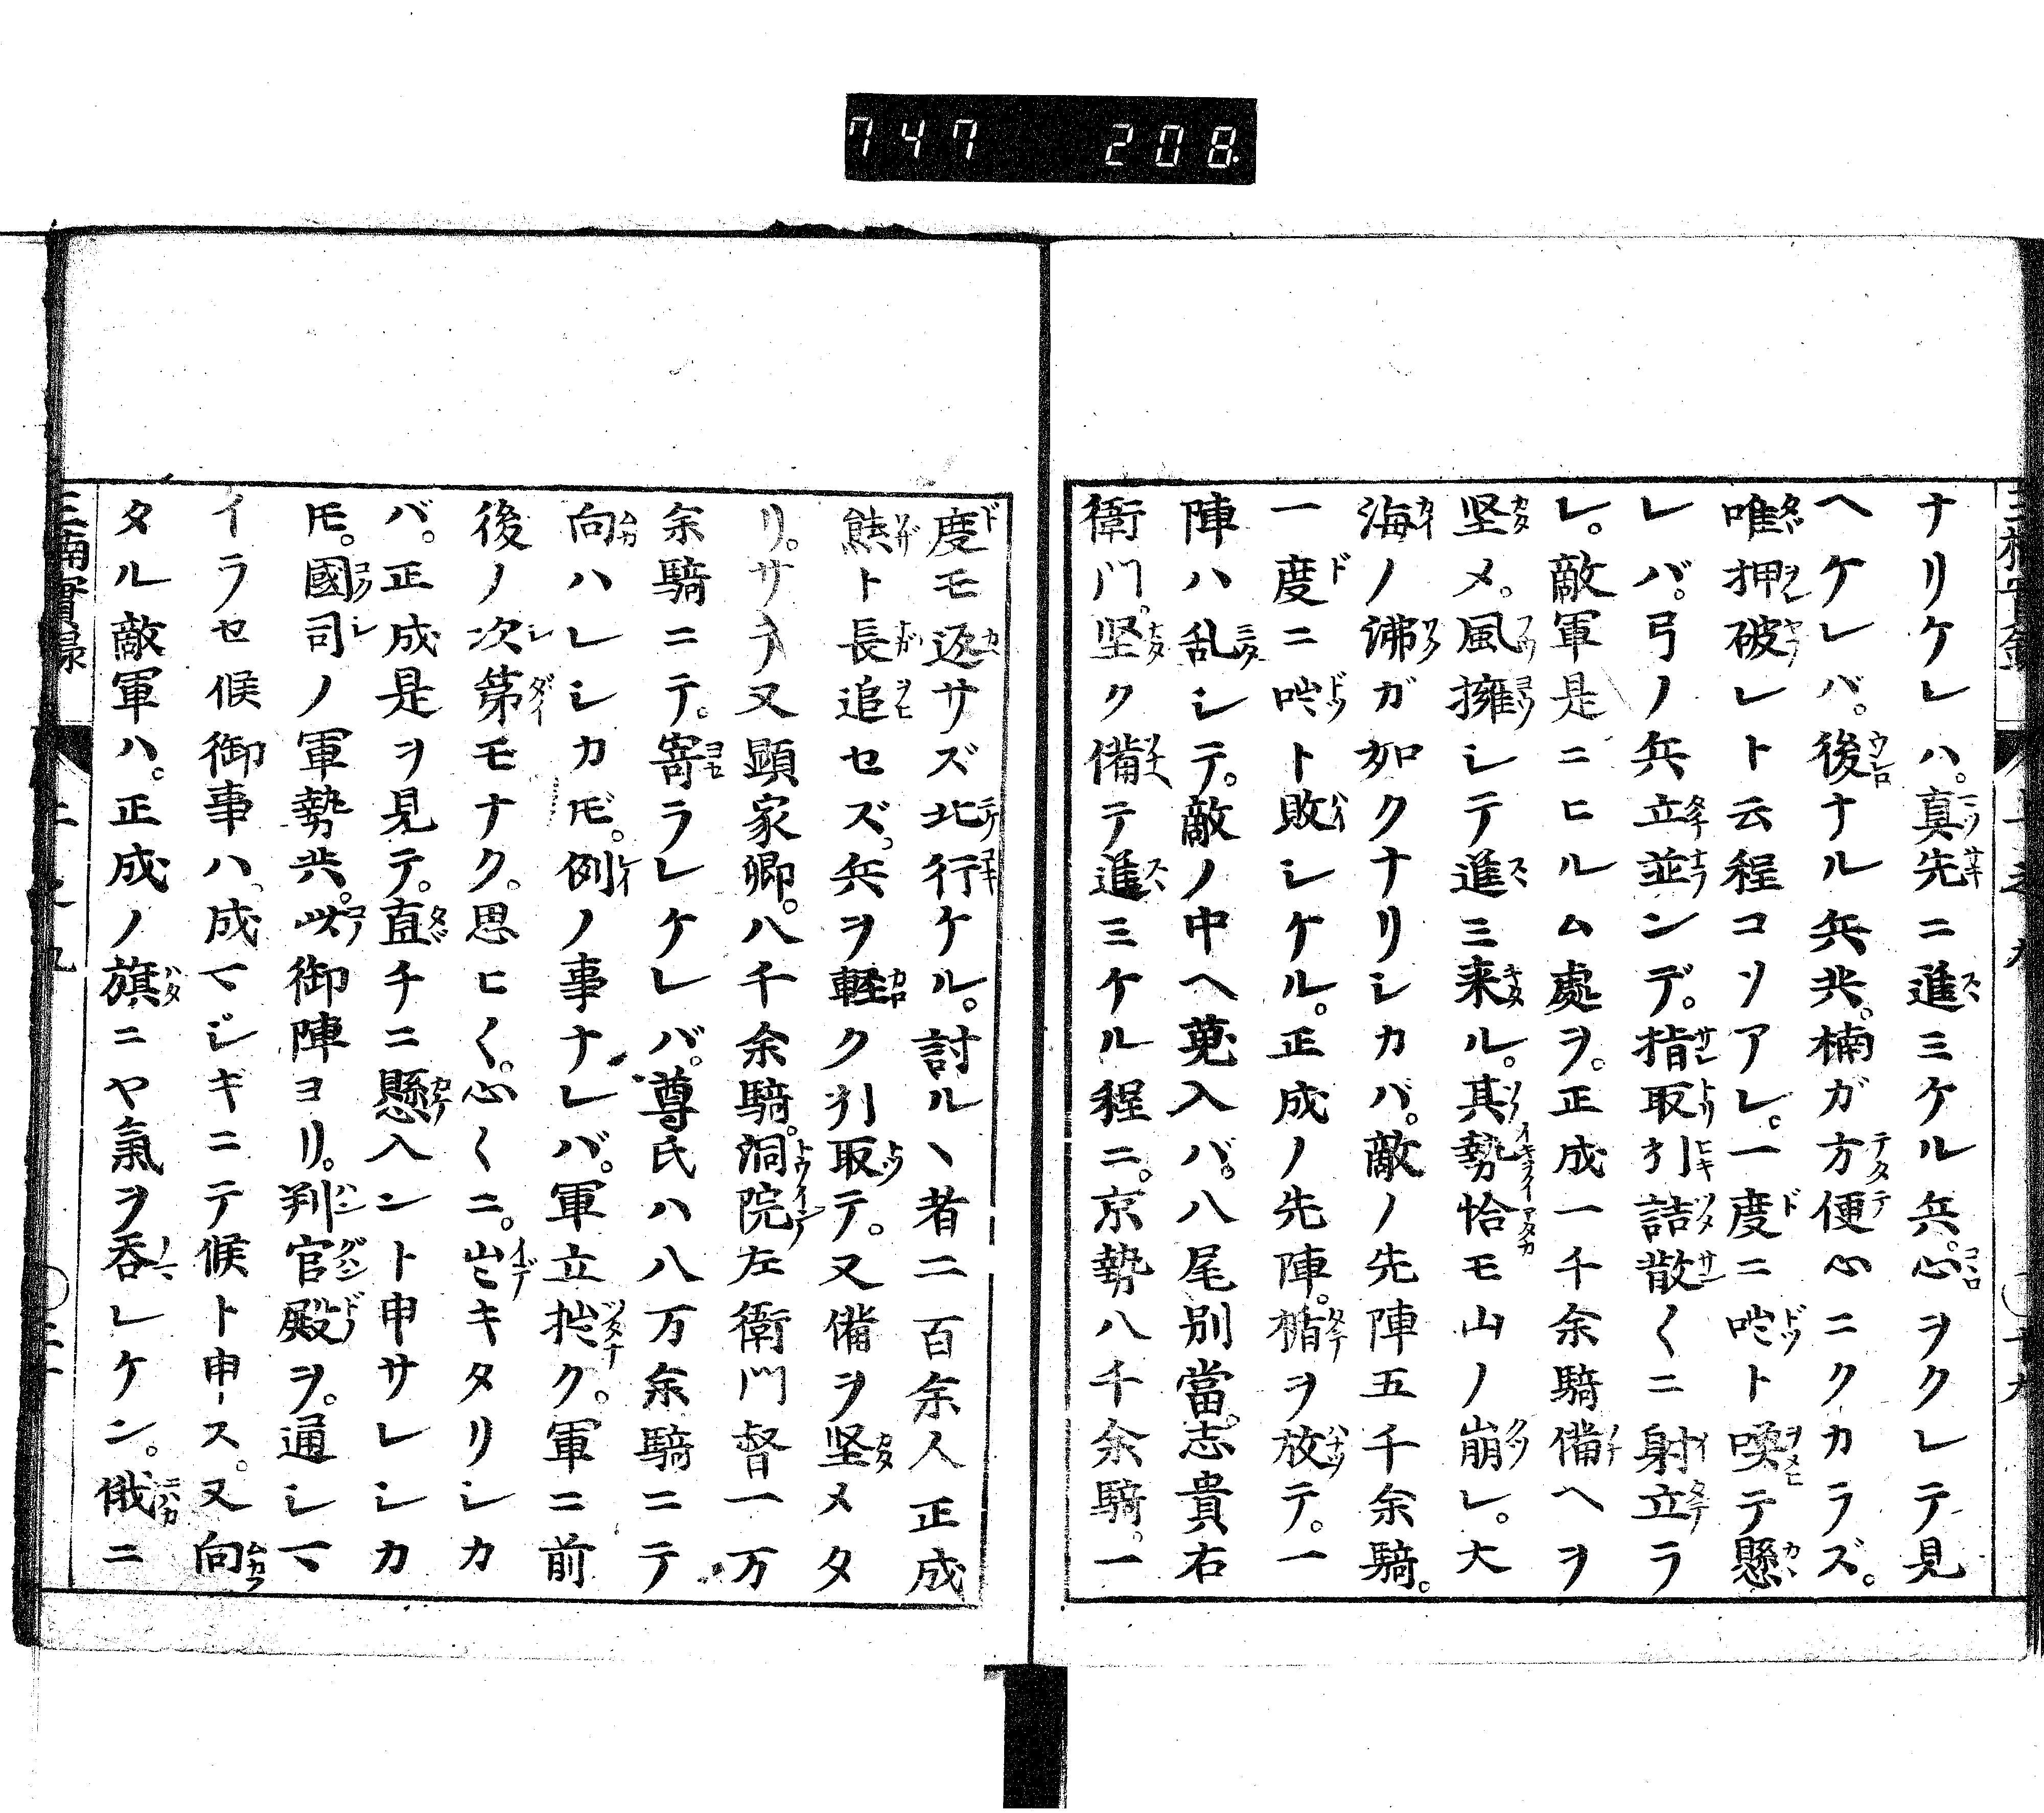 747 208.
ナリケレハ。真先ニ進ミケル兵。心ヲクレテ見
ヘケレバ。後ナル兵共。楠ガ方便心ニクカラズ。
唯押破レト云程コソアレ。一度ニ咜ト喚テ懸
レバ。弓ノ兵立並ンデ。指取引詰散〱ニ射立ラ
レ。敵軍是ニヒルム處ヲ。正成一千余騎備ヘヲ
堅メ。風擁シテ進ミ来ル。其勢恰モ山ノ崩レ。大
海ノ沸ガ如クナリシカバ。敵ノ先陣五千余騎。
一度ニ咜ト敗シケル。正成ノ先陣。楯ヲ放テ。一
陣ハ乱シテ。敵ノ中ヘ蒐入バ。八尾別當。志貴右
衛門。堅ク備テ進ミケル程ニ。京勢八千余騎。一
度モ返サズ北行ケル。討ルヽ者二百余人正成
熊ト長追セズ。兵ヲ軽ク引取テ。又備ヲ堅メタ
リ。サテ又顕家卿。八千余騎。洞院左衛門督一万
余騎ニテ。寄ラレケレバ。尊氏ハ八万余騎ニテ
向ハレシカ𪜈。例ノ事ナレバ。軍立拙ク。軍ニ前
後ノ次第モナク。思ヒ〱。心〱ニ。出キタリシカ
バ。正成是ヲ見テ。直チニ懸入ント申サレシカ
𪜈。國司ノ軍勢共。此御陣ヨリ。判官殿ヲ。通シマ
イラセ候御事ハ。成マジキニテ候ト申ス。又向
タル敵軍ハ。正成ノ旗ニヤ氣ヲ呑レケン。俄ニ
三楠實録